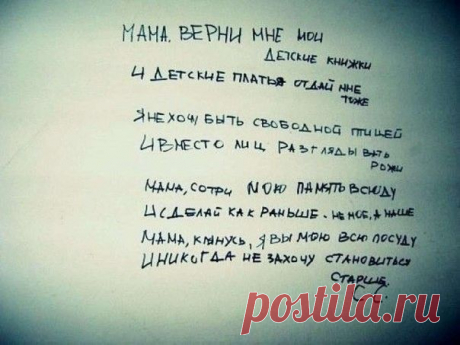 МАМА. ВЕРНИ МНЕ МОИ
ДЕТСКИЕ КНИЖКИ
И ДЕТСКИЕ ПЛАТЬЯ ОТДАЙ МНЕ
ТОЖЕ
Я НЕ ХОЧУ БЫТЬ СВОБОДНОЙ ПТИЦЕЙ
И ВМЕСТО ЛИЦ РАЗГЛЯДЫВАТЬ
РОЖИ
МАМА, СОТРИ МОЮ ПАМЯТЬ ВСЮДУ
И СДЕЛАЙ КАК РАНЬШЕ - НЕ МОЕ, А НАШЕ
МАМА, КЛЯНУСЬ, Я ВЫМОЮ ВСЮ ПОСУДУ
И НИКОГДА НЕ ЗАХОЧУ СТАНОВИТЬСЯ
СТАРШЕ.
С. С.
postila.ru